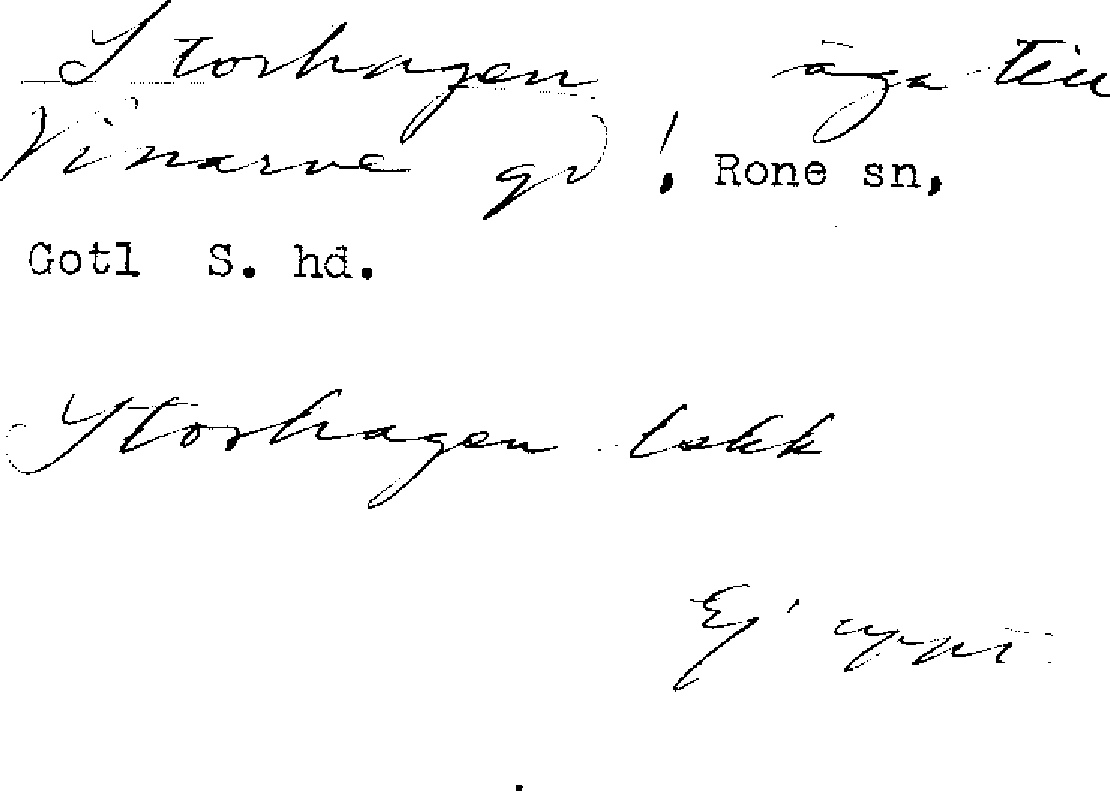 Storhagen äga till
Vinarve gd, Rone sn,
Gotl S. hd.
Storhagen lskk
Ej uppt